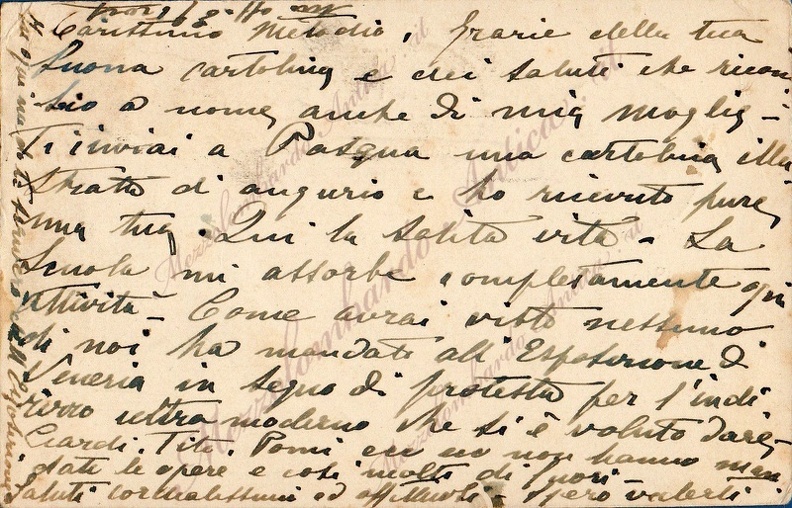 Carissimo Metodio, Grazie della tua
buona cartolina e dei saluti che ricam
bio a nome anche di mia moglie -
Ti inviai a Pasqua una cartolina illu
strata di augurio e ho ricevuto pure
una tua. Qui la solita vita - La
Scuola mi assorbe completamente ogni
attività - Come avrai visto nessuno
di noi ha mandato all'Esposizione di
Venezia in segno di protesta per l'indi
rizzo ultra moderno che si è voluto dare
Ciardi. Tito. Pomi ecc no non hanno man
date le opere e così molti di fuori
saluti cordialissimi ed affettuosi - Spero vederti
Mezzolombardo Antica.it
Mezzolombardo Antica.it
Mezzolombardo Antica.it